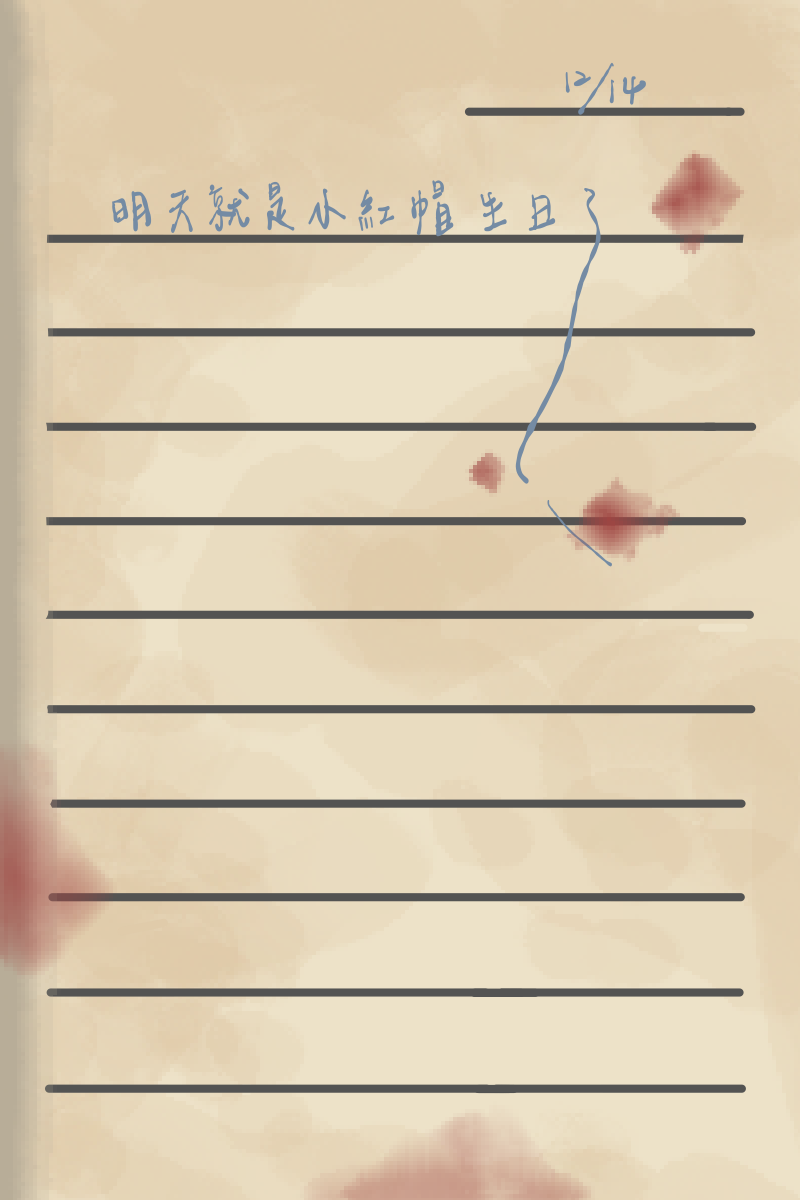 12/14
明天就是小紅帽生日